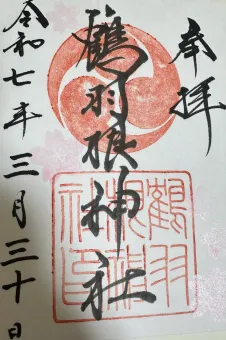 奉拝
鶴羽根神社
令和七年三月三十日
鶴羽
根神社